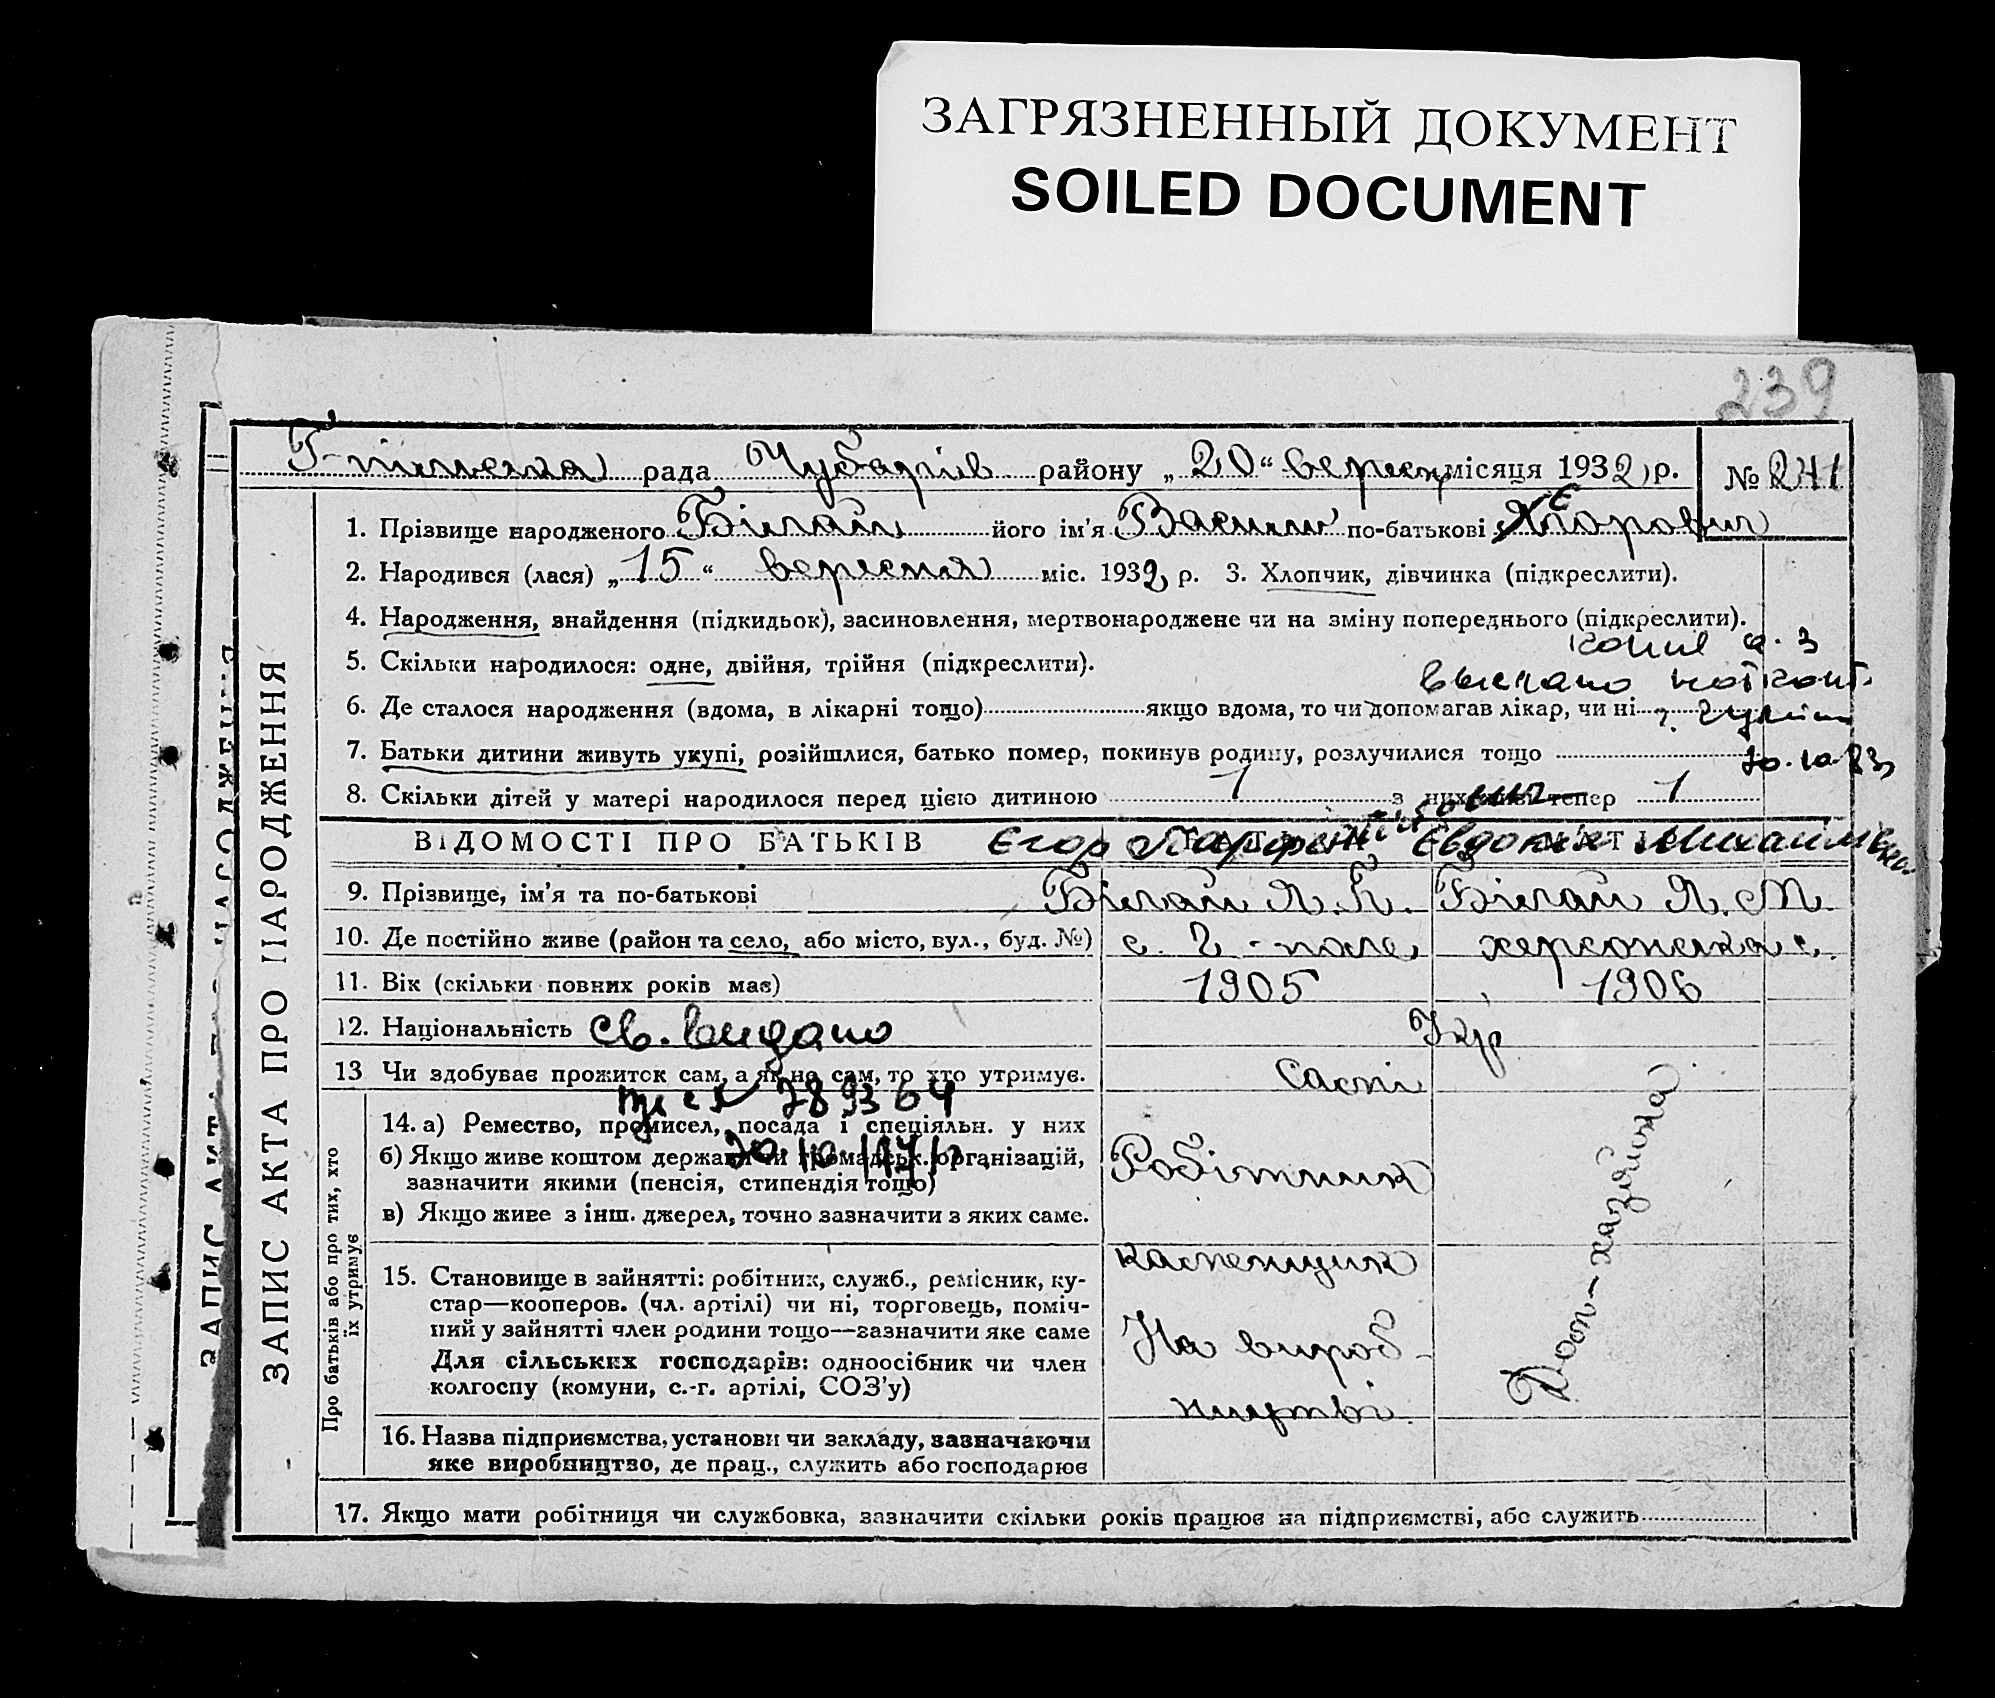 ЗАГРЯЗНЕННЫЙ ДОКУМЕНТ
SOILED DOCUMENT
239
рада Чубарів району „20“ вересн місяця 1932 р. № 241
ЗАПИС АКТА ПРО НАРОДЖЕННЯ
1. Прізвище народженого Білай його ім'я Василь по-батькові Єгорович
2. Народився (лася) „15“ вересня міс. 1932 р. 3. Хлопчик, дівчинка (підкреслити).
4. Народження, знайдення (підкидьок), засиновлення, мертвонароджене чи на зміну попереднього (підкреслити).
5. Скільки народилося: одне, двійня, трійня (підкреслити).
6. Де сталося народження (вдома, в лікарні тощо) якщо вдома, то чи допомагав лікар, чи ні
7. Батьки дитини живуть укупі, розійшлися, батько помер, покинув родину, розлучилися тощо
8. Скільки дітей у матері народилося перед цією дитиною 1 з них живі тепер 1
ВІДОМОСТІ ПРО БАТЬКІВ Єгор Евдокія Михайлівна
9. Прізвище, ім'я та по-батькові Білай Я. П. Білай Я. М.
10. Де постійно живе (район та село, або місто, вул., буд. №) с. Г-поле, херсонська с.
11. Вік (скільки повних років має) 1905 1906
12. Національність Св. видано Укр
13 Чи здобуває прожиток сам, а як не сам, то хто утримує. Самі
789364
Про батьків або про тих, хто їх утримує
14. а) Ремество, промисел, посада і спеціяльн. у них
б) Якщо живе коштом держави чи громадськ. організацій,
зазначити якими (пенсія, стипендія тощо)
в) Якщо живе з інш. джерел, точно зазначити з яких саме.
Робітник
Дом-хазяйка
15. Становище в зайнятті: робітник, служб., ремісник, ку-
стар—кооперов. (чл. артілі) чи ні, торговець, поміч-
ний у зайнятті член родини тощо—зазначити яке саме
Для сільських господарів: одноосібник чи член
колгоспу (комуни, с.-г. артілі, СОЗ'у)
каменщик
На вироб-
ництві.
16. Назва підприємства, установи чи закладу, зазначаючи
яке виробництво, де прац., служить або господарює
17. Якщо мати робітниця чи службовка, зазначити скільки років працює на підприємстві, або служить